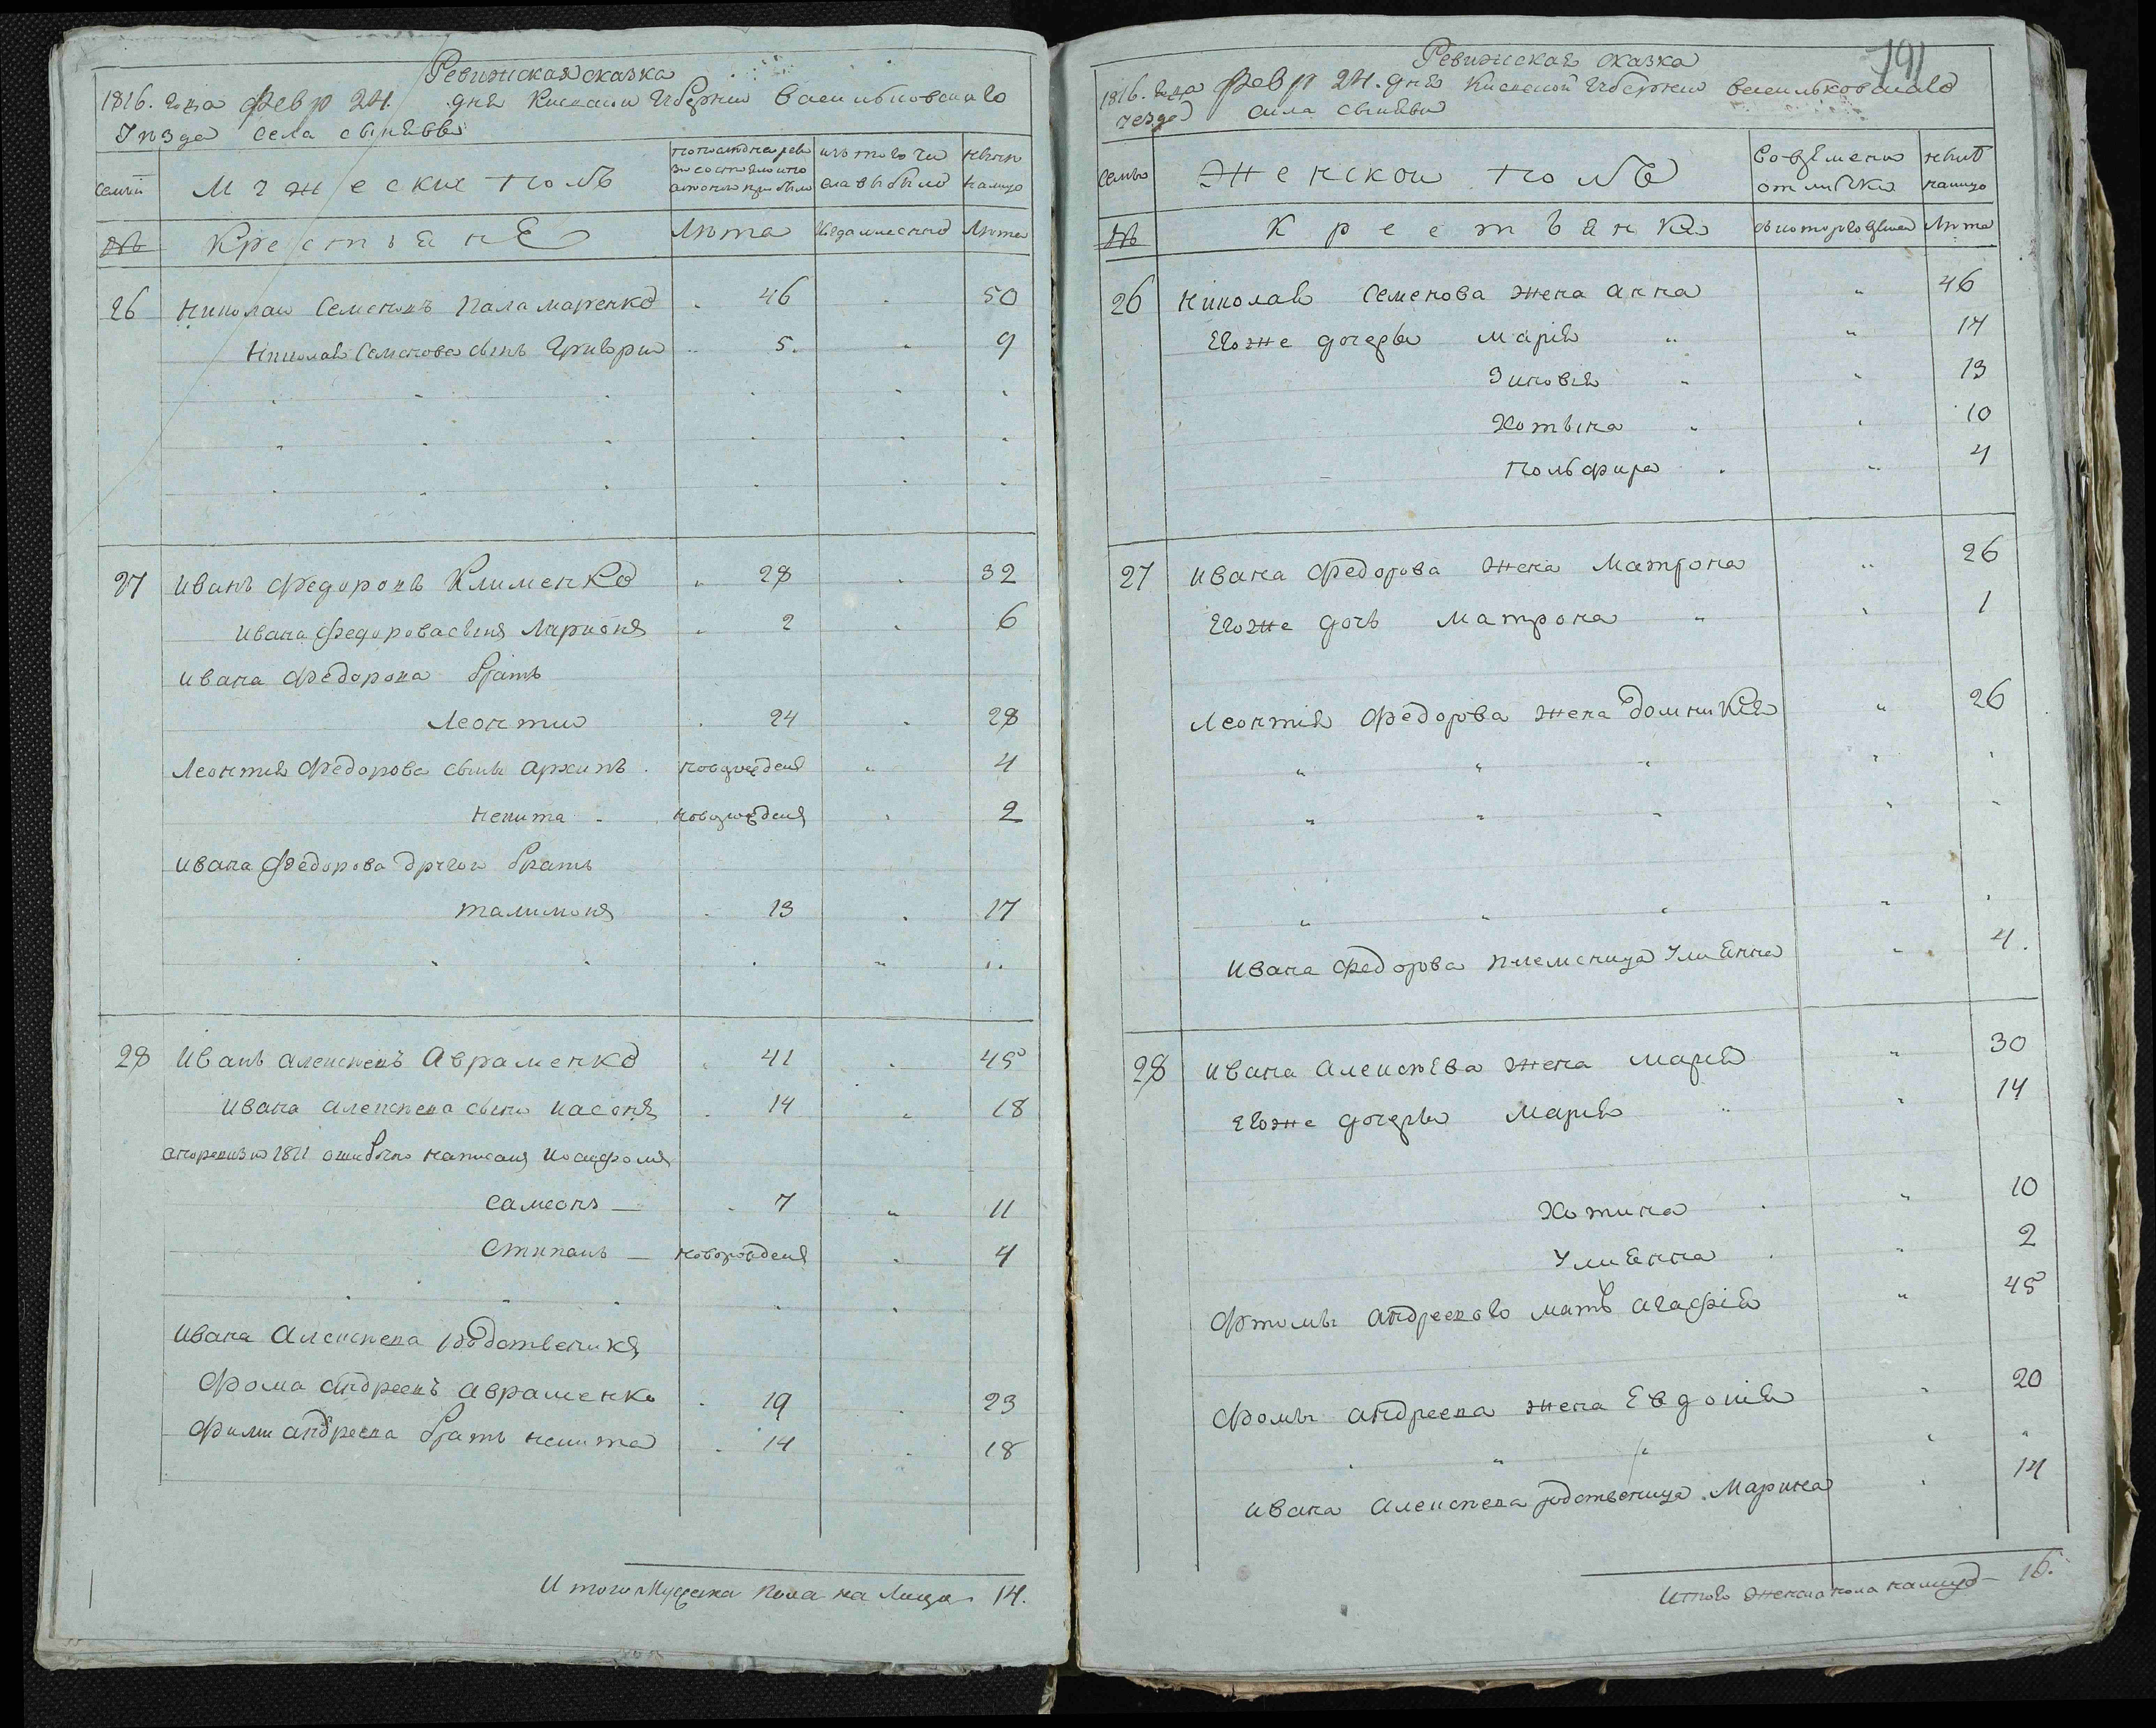 Ревижская сказка
1816. года февр 24. дня Киевской Губернии Васильковскаго
Уезда села сынявы
семьи
Мужеские полъ
по последней реви
зии состояло и по
оной прибыло
изъ того чи
сла выбыло
ныне
налицо
№
Крестьяне
Лѣта
Когда именно
Лѣта
26 Николай Семеновъ Паламаренко 46 50
Николая Семенова сынъ Григори 5. 9
27 Иванъ Федоровъ Клименко 28 32
Ивана Федорова сынъ Ларионъ 2 6
Ивана Федорова братъ
Леонтий 24 28
Леонтия Федорова сынъ Архипъ новорожденъ 4
Никита новорожденъ 2
Ивана Федорова другой братъ
Талимонъ 13 17
28 Иванъ Алексеевъ Авраменко 41 45
Ивана Алексеева сынъ Иасонъ 14 18
а по ревизии 1811 ошибочно написанъ
Самсонъ — 7 11
Степанъ — новорожденъ 4
Ивана Алексеева родственикъ
Фома Андреевъ Авраменко 19 23
Фомы Андреева братъ Никита 14 18
Итого Мужеска пола на Лицо 14.
191
Ревижская сказка
1816. года февр 24. дня Киевской Губернии Васильковскаго
уезда села сынявы
семьи
Женской полъ
Во времени
отлучки
ныне
налицо
№
Крестьянки
съ которого времени
Лѣта
26 Николая Семенова жена Анна 46
Его же дочери Марія 14
Зиновія 13
Хотына 10
Польфира 4
27 Ивана Федорова жена Матрона 26
Его же дочь Матрона 1
Леонтія Федорова жена Домникія 26
Ивана Федорова племеница Улиянна 4.
28 Ивана Алексѣева жена Марія 30
Его же дочери Марія 14
Хотина 10
Улиянна 2
Фтомы Андреевого мать Агафія 45
Фомы Андреева жена Евдокія 20
Ивана Алексеева родственица Марина 14
Итого женска пола налицо — 16.